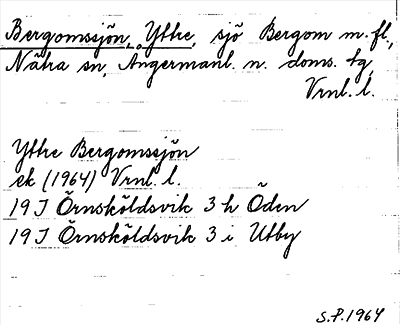 Bergomssjön, Yttre, sjö Bergom m. fl.,
Nätra sn, Ångermanl. n. doms. tg,
Vrnl. l.
Yttre Bergomssjön
ek (1964) Vrnl. l.
19 J Örnsköldsvik 3 h Öden
19 J Örnsköldsvik 3 i Utby
S.P. 1964